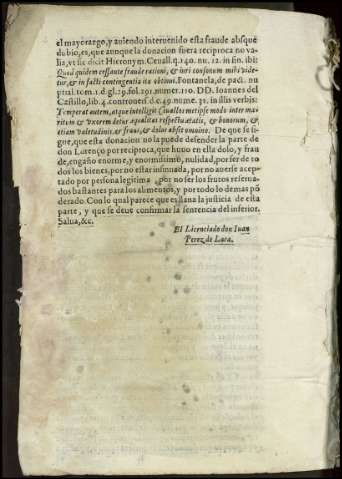 el mayorazgo, y auiendo interuenido esta fraude absque
dubio, es, que aunque la donacion fuera reciproca no va-
lia, vt sic dicit Hieronym. Ceuall. q. 140. nu. 12. in fin. ibi:
Quod quidem cessante fraude rationi, & iuri consonum mihi vide-
tur, & in facti contingentia ita obtinui. Fontanela, de pact. nu
ptial. tom. 1. d. gl. 29. fol. 291. numer. 110. DD. Ioannes del
Castillo, lib. 4. controuers. d. c. 49. nume. 31. in illis verbis:
Temperat autem, atque intelligit Ceuallos metipse modo inter ma-
ritum & vxorem detur aqualitas respectu ætatis, & bonorum, &
etiam valetudinis, & fraus, & dolus absit omnino. De que se si-
gue, que esta donacion no la puede defender la parte de
don Lorenço por reciproca, que huuo en ella dolo, y frau
de, engaño enorme, y enormissimo, nulidad, por ser de to
dos los bienes, por no estar insinuada, por no auerse acep-
tado por persona legitima, por no ser los frutos reserua-
dos bastantes para los alimentos, y por todo lo demas pó
derado. Con lo qual parece que es llana la justicia de esta
parte, y que se deue confirmar la sentencia del inferior.
Salua, &c.
El Licenciado don Iuan
Perez de Lara.